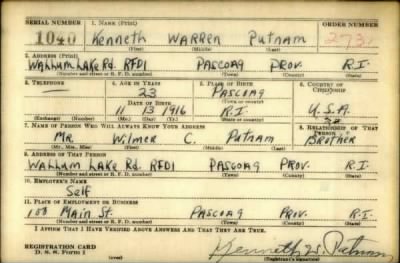 SERIAL NUMBER 1. NAME (Print) ORDER NUMBER
1040 Kenneth WARREN Putnam 2731
(First) (Middle) (Last)
2. ADDRESS (Print)
WALLUM LAKE Rd. RFD1 PASCOAG PROV. R.I.
(Number and street or R. F. D. number) (Town) (County) (State)
3. TELEPHONE 4. AGE IN YEARS 5. PLACE OF BIRTH 6. COUNTRY OF CITIZENSHIP
23 PASCOAG
DATE OF BIRTH
11 13 1916 R.I. U.S.A.
(Exchange) (Number) (Mo.) (Day) (Yr.) (State or country)
7. NAME OF PERSON WHO WILL ALWAYS KNOW YOUR ADDRESS 8. RELATIONSHIP OF THAT PERSON
Mr. Wilmer C. Putnam Brother
(Mr., Mrs., Miss) (First) (Middle) (Last)
9. ADDRESS OF THAT PERSON
WALLUM LAKE Rd. RFD1 PASCOAG PROV. R.I.
(Number and street or R. F. D. number) (Town) (County) (State)
10. EMPLOYER'S NAME
Self
11. PLACE OF EMPLOYMENT OR BUSINESS
Main St. PASCOAG PROV. R.I.
(Number and street or R. F. D. number) (Town) (County) (State)
I AFFIRM THAT I HAVE VERIFIED ABOVE ANSWERS AND THAT THEY ARE TRUE.
REGISTRATION CARD
D. S. S. Form 1 Kenneth W. Putnam
(Registrant's signature)